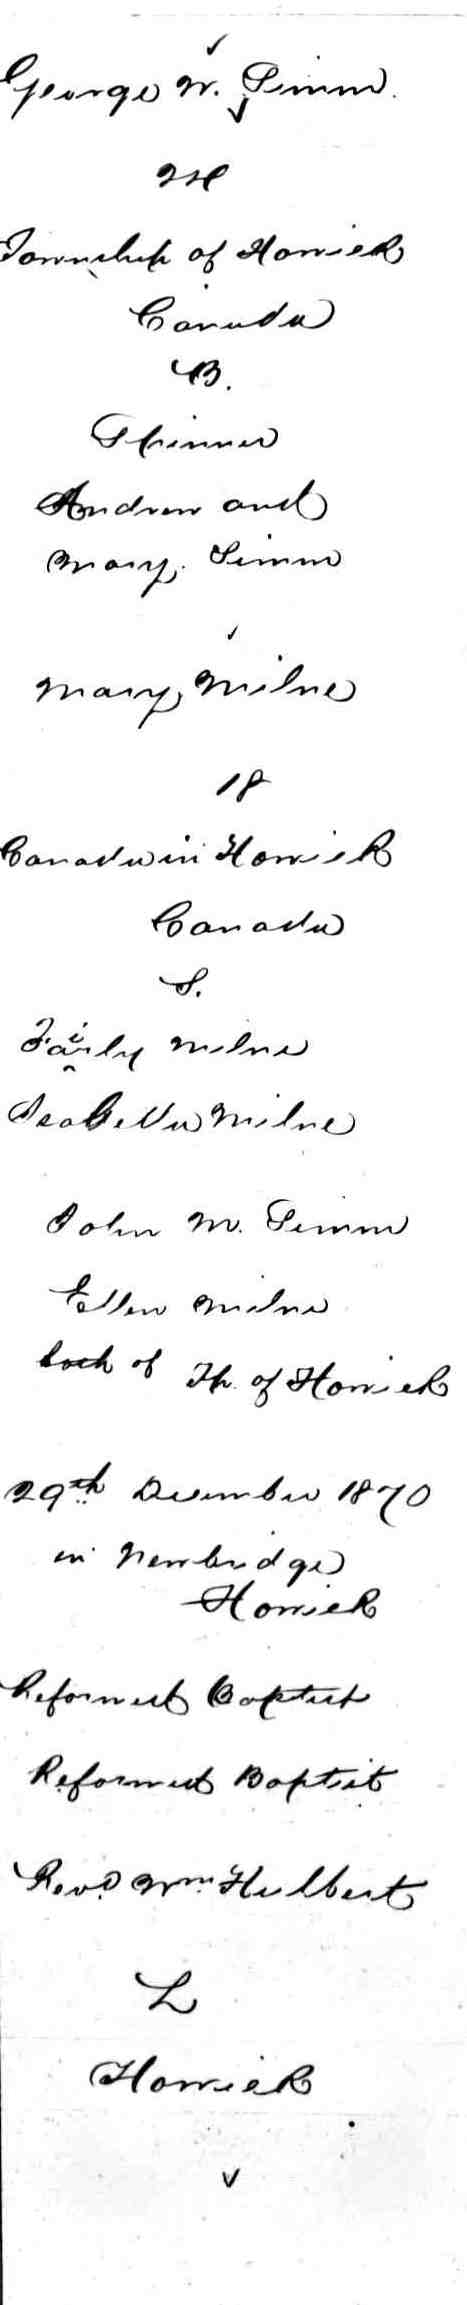 George W. Simm.
Township of Howick
Canada
B.
Andrew and
Mary Simm
Mary Milne
18
Canada in Howick
Canada
S.
Fairly Milne
Isabella Milne
John M. Simm
Ellen Milne
both of Tp. of Howick
29th December 1870
in Newbridge
Howick
Reformed Baptist
Reformed Baptist
Revd. Wm. Hulbert
L
Howick